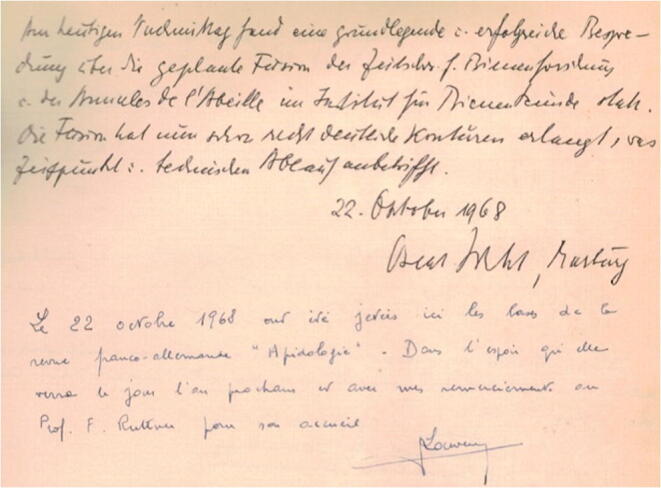 Am heutigen Nachmittag fand eine grundlegende u. erfolgreiche Bespre-
chung über die geplante Fusion der Zeitschr. f. Bienenforschung
u. der Annales de l'Abeille im Institut für Bienenkunde statt.
Die Fusion hat nun schon recht deutliche Konturen erlangt, was
Zeitpunkt u. technischen Ablauf anbetrifft.
22. Oktober 1968
, Marburg
Le 22 octobre 1968 ont été jetées ici les bases de la
revue franco-allemande "Apidologie". Dans l'espoir qu'elle
verra le jour l'an prochain et avec mes remerciements au
Prof. F. Ruttner pour son accueil